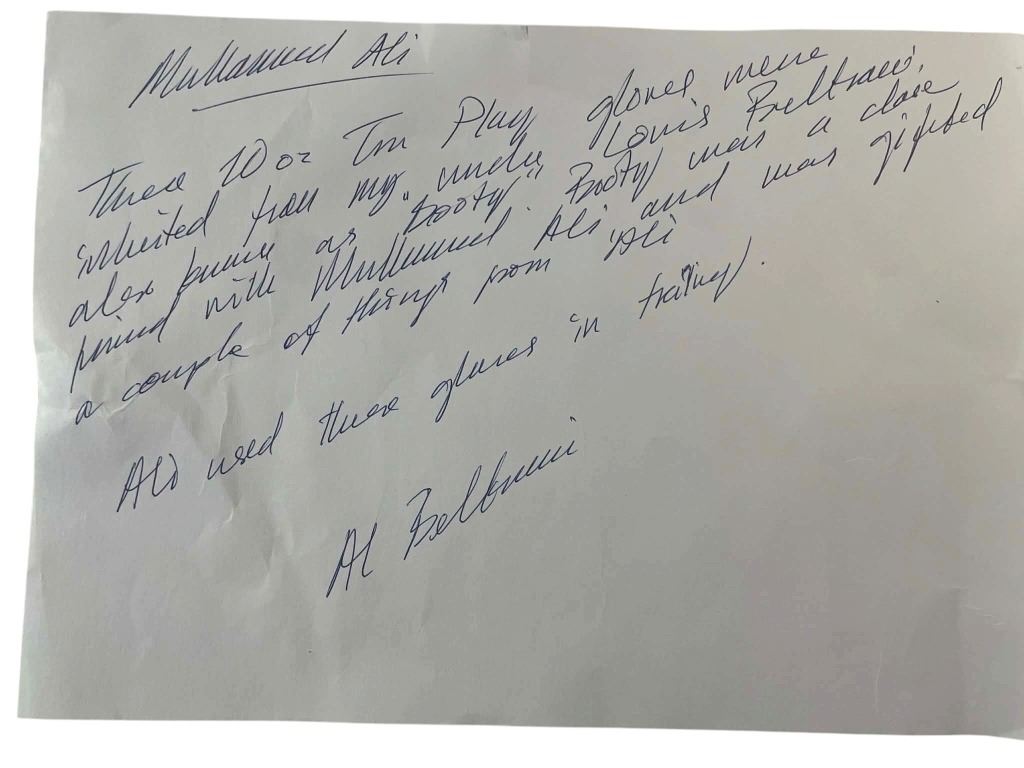 Muhammed Ali
These 10 oz Tru Play gloves were
inherited from my uncle Louis Beltrami,
also known as "Booty" Booty was a close
friend with Muhammed Ali and was gifted
a couple of things from Ali
Ali used these gloves in training.
Al Beltrami